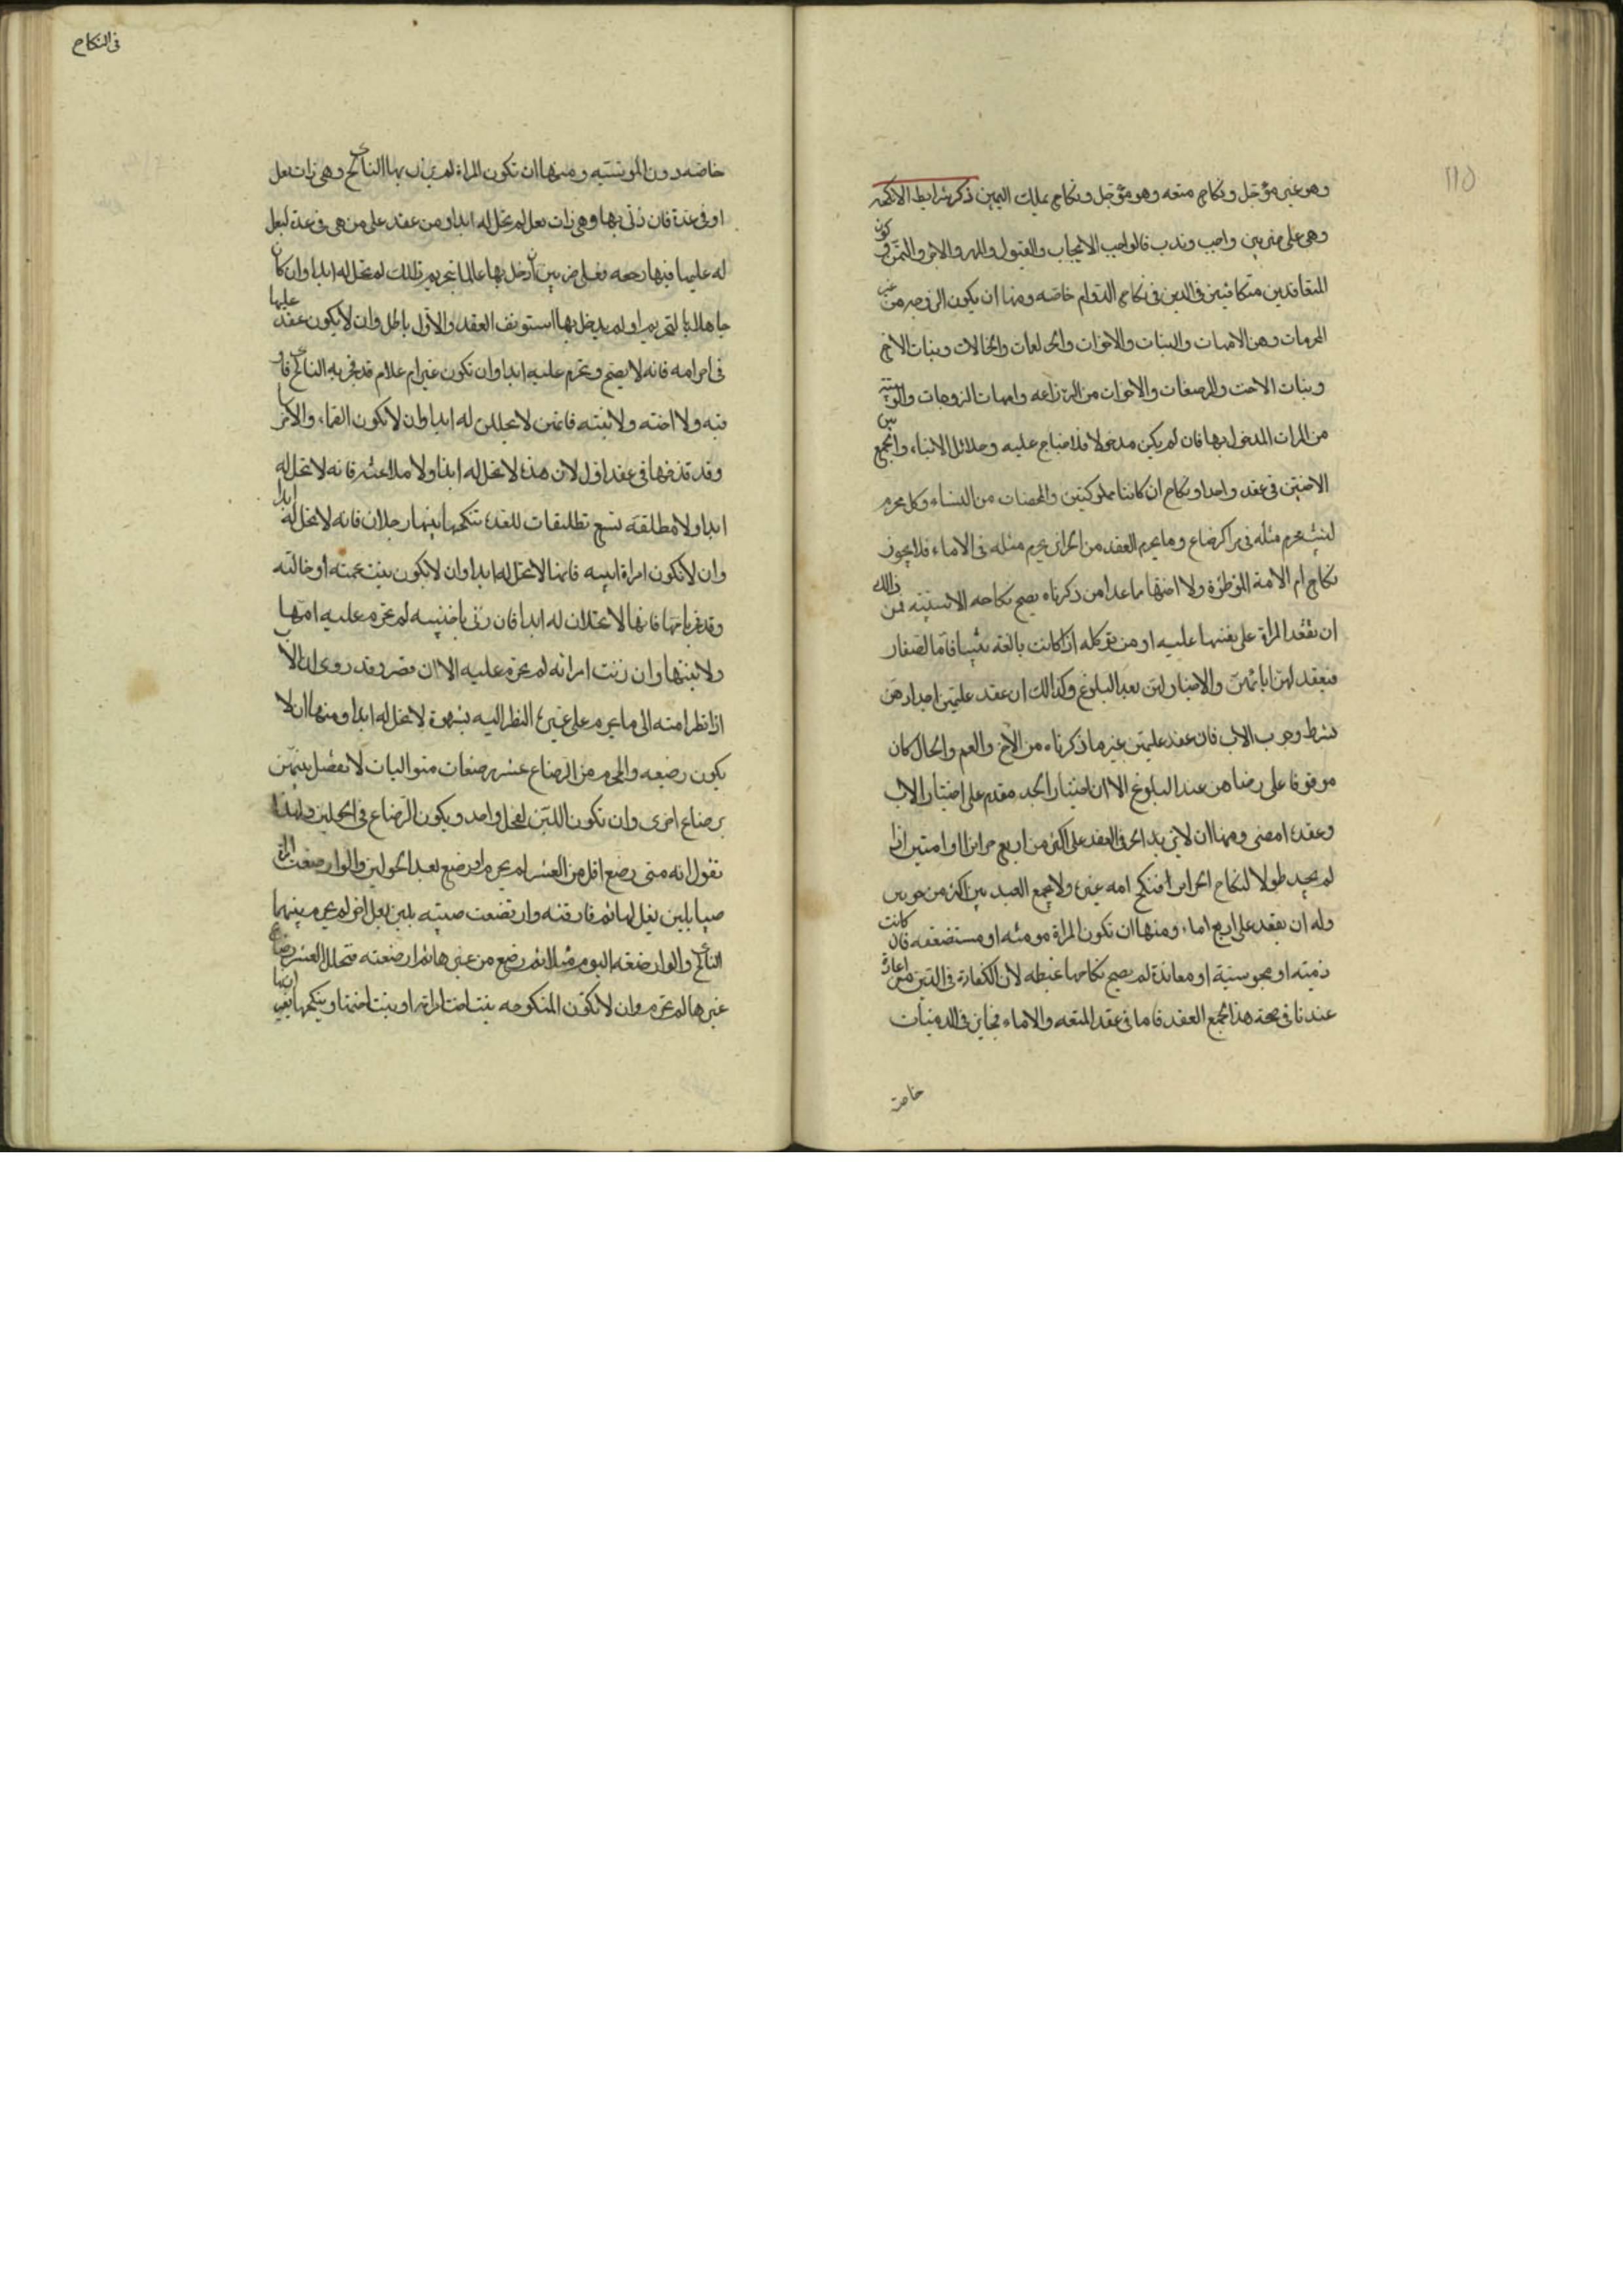 ١١٥
وهو غير مؤجل ونكاح متعه وهو مؤجل ونكاح بملك اليمين ذكر شرايط الانكحه
وهي على ضربين واجب وندب فالواجب الايجاب والقبول والمهر والاجر والثمن وكون
المتعاقدين متكافئين في الدين في نكاح الدوام خاصه ومنها ان يكون الزوجه من غير
المحرمات وهن الامهات والبنات والاخوات والعمات والخالات وبنات الاخ
وبنات الاخت والمرضعات والاخوات من الرضاعه وامهات الزوجات والربيبه
من المرات المدخول بها فان لم يكن مدخولا فلا جناح عليه وحلائل الابناء والجمع بين
الاختين في عقد واحد او نكاح ان كانتا مملوكتين والمحصنات من النساء وكل محرم
لنسب يحرم مثله في الرضاع وما يحرم العقد من الحراير يحرم مثله في الاماء فلا يجوز
نكاح ام الامة الموطؤة ولا اختها ما عدا من ذكرناه يصح نكاحه الا نستثنيه فمن ذالك
ان تعقد المراة على نفسها عليه او من توكله اذا كانت بالغه ثيبا فاما الصغار
فيعقد لهن ابائهن والاختيار لهن بعد البلوغ وكذالك ان عقد عليهن اجدادهن
بشرط وجوب الاب فان عقد عليهن غير ما ذكرناه من الاخ والعم والخال كان
موقوفا على رضاهن عند البلوغ الا ان اختيار الجد مقدم على اختيار الاب
وعقده امضى ومنها ان لا يزيد الحر في العقد على اكثر من اربع حراير او امتين اذا
لم يجد طولا لنكاح الحراير افنكح امه غيره ولا يجمع العبد بين اكثر من حرتين
وله ان يعقد على اربع اماء ومنها ان تكون المراة مومنه او مستضعفه فان كانت
ذميه او مجوسية او معاندة لم يصح نكاحها غبطه لان الكفارة في الدين مراعاة
عندنا في صحة هذا العقد فاما في عقد المتعه والاماء فجايز في الذميات
خاصة
في النكاح
خاصه دون المجوسيه ومنها ان تكون المراة لم يزن بها الناكح وهي ذات بعل
او في عدة فان زنى بها وهي ذات بعل لم تحل له ابدا ومن عقد على من هي في عدة لبعل
له عليها فيها رجعه فعلى ضربين ان دخل بها عالما بتحريم ذلك لم تحل له ابدا وان كان
جاهلا بالتحريم او لم يدخل بها استونف العقد والاول باطل وان لا يكون عقد عليها
في احرامه فانه لا يصح وتحرم عليه ابدا وان تكون غير ام غلام قد فجر به الناكح فاوقب
فيه ولا اخته ولا بنته فانهن لا يحللن له ابدا وان لا تكون الصماء والاخرس
وقد قذفها في عقد اول لان هذه لا تحل له ابدا ولا ملاعنته فانه لا تحل له
ابدا ولا مطلقة تسع تطليقات للعده تنكحها بينها رجلان فانه لا تحل له ابدا
وان لا تكون امراة ابيه فانها لا تحل له ابدا وان لا يكون بنت عمته او خالته
وقد فجر بامها فانها لا تحلان له ابدا فان زنى باجنبيه لم تحرم عليه امها
ولا بنتها وان زنت امراته لم تحرم عليه الا ان تصر وقد روى ان الاب
اذا نظر امته الى ما يحرم على غيره النظر اليه بشهوة لا تحل له ابدا ومنها ان لا
يكون رضيعه والمحرم من الرضاع عشر رضعات متواليات لا يفصل بينهن
برضاع اخرى وان تكون اللبن لفحل واحد ويكون الرضاع في الحولين ولهذا
نقول انه متى رضع اقل من العشر لم يحرم او رضع بعد الحولين ولو ارضعت المراة
صبيا بلبن بعل لها ثم فارقته وارتضعت صبيه بلبن بعل اخر لم يحرم بينهما
التناكح ولو ارضعته اليوم مثلا ثم رضع من غيرها ثم ارضعته فتخلل العشر رضاع
غيرها لم تحرم وان لا تكون المنكوحه بنت اخت امراته او بنت اختها وينكحها بغير اذنها